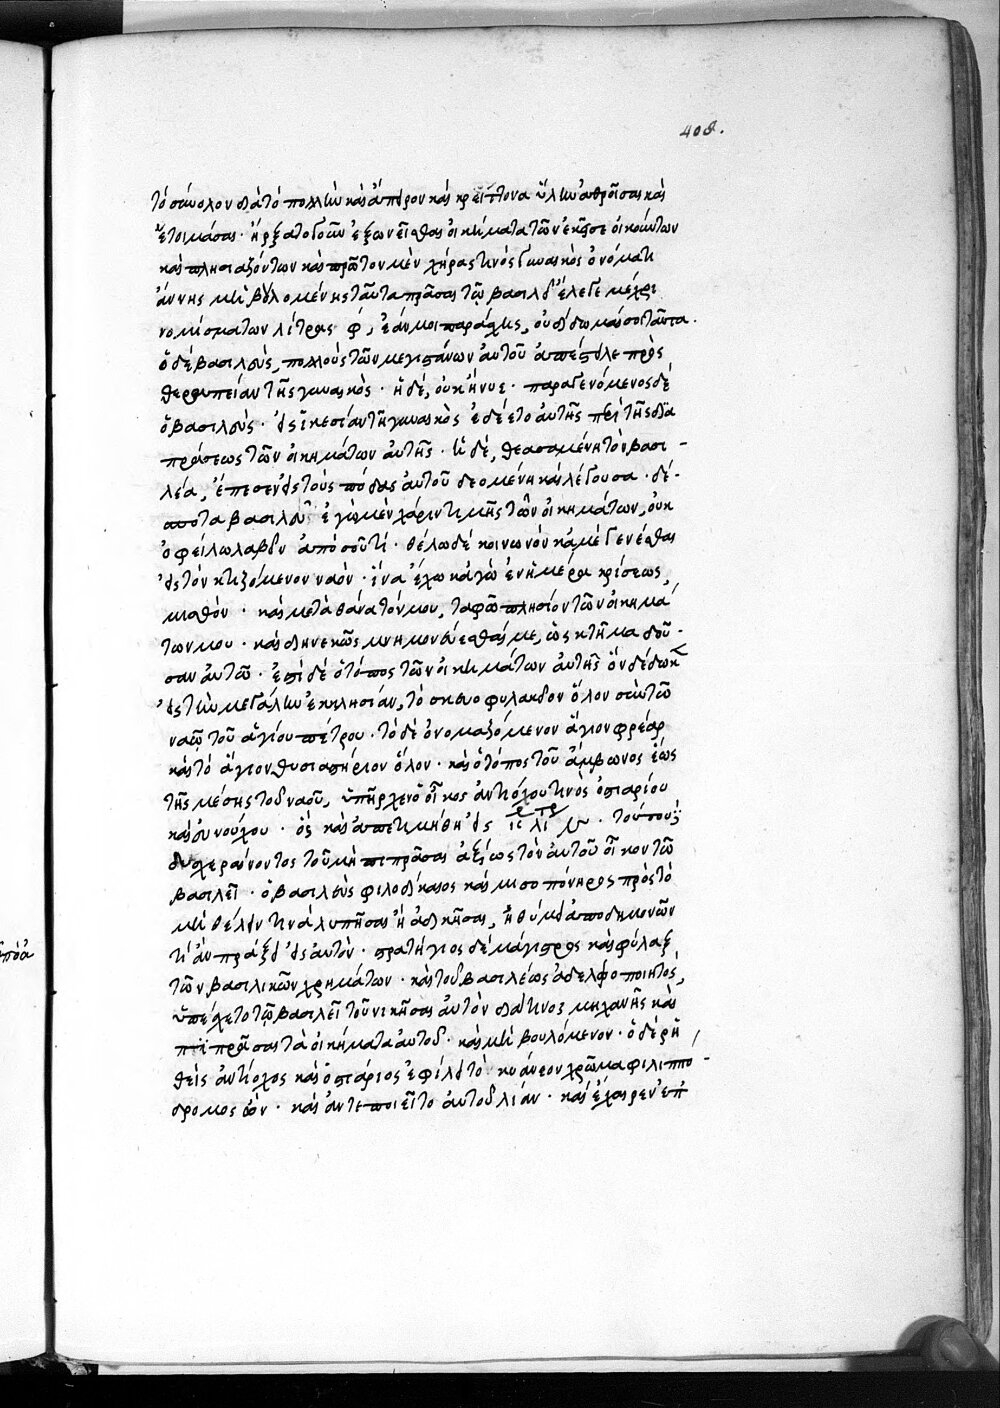 408.
τὸ σύνολον διὰ τὸ πολλὴν καὶ ἄπειρον καὶ κρείττονα ὕλην ἀθροῖσαι καὶ
ἑτοιμάσαι · ἤρξατο δ οὖν ἐξωνεῖσθαι οἰκήματα τῶν ἐκεῖσε οἰκούντων
καὶ πλησιαζόντων καὶ πρῶτον μὲν χήρας τινὸς γυναικὸς ὀνόματι
ἄννης μὴ βουλομένης ταῦτα πρᾶσαι τῷ βασιλεῖ ἔλεγε μέχρι
νομίσματων λίτρας φ, ἐάν μοι παράσχῃς, οὐ δίδωμαί σοι ταῦτα.
ὁ δὲ βασιλεὺς, πολλοὺς τῶν μεγιστάνων αὐτοῦ ἀπέστειλε πρὸς
θεραπείαν τῆς γυναικὸς · ἡ δέ, οὐκ ἤνυε · παραγενόμενος δὲ
ὁ βασιλεὺς · εἰς ἱκεσίαν τῆ γυναικὸς ἐδέετο αὐτῆς περὶ τῆς δια
πράσεως τῶν οἰκημάτων αὐτῆς · ἡ δέ, θεασαμένη τὸν βασι-
λέα, ἔπεσεν εἰς τοὺς πόδας αὐτοῦ δεομένη καὶ λέγουσα · δέ-
σποτα βασιλεῦ ἐγὼ μὲν χάριν τιμῆς τῶν οἰκημάτων, οὐκ
ὀφείλω λαβεῖν ἀπό σοῦ τί · θέλω δὲ κοινωνὸν κἀμὲ γενέσθαι
εἰς τὸν κτιζόμενον ναὸν · ἵνα ἔχω κἀγὼ ἐν ἡμέρᾳ κρίσεως,
μισθὸν · καὶ μετὰ θάνατόν μου, ταφῶ πλησίον τῶν οἰκημά
των μου · καὶ διηνεκῶς μνημονεύεσθαί με, ὡς κτῆμα δοῦ-
σαν αὐτῶ · ἐπὶ δὲ ὁ τόπος τῶν οἰκημάτων αὐτῆς ὃν δέδωκε
εἰς τὴν μεγάλην ἐκκλησίαν, τὸ σκευοφυλακεῖον ὅλον σὺν τῶ
ναῷ τοῦ ἁγίου πέτρου · τὸ δὲ ὀνομαζόμενον ἅγιον φρέαρ
καὶ τὸ ἅγιον θυσιαστήριον ὅλον · καὶ ὁ τόπος τοῦ ἄμβωνος ἕως
τῆς μέσης τοῦ ναοῦ, ὑπῆρχεν ὁ οἶκος ἀντιόχου τινὸς ὀστιαρίου
καὶ εὐνούχου · ὃς καὶ ἀπετιμήθη εἰς
δυσχεραίνοντος τοῦ μὴ πιπρᾶσαι ἀξίως τὸν αὐτοῦ οἶκον τῶ
βασιλεῖ · ὁ βασιλεὺς φιλοδίκαιος καὶ μισοπόνηρος πρὸς τὸ
μὴ θέλειν τινὰ λυπῆσαι ἢ ἀδικῆσαι, ἠθύμει ἀποδημονῶν
τί ἂν πράξει εἰς αὐτὸν · στρατήγιος δὲ μάγιστρος καὶ φύλαξ
τῶν βασιλικῶν χρημάτων · καὶ τοῦ βασιλέως ἀδελφοποιητός,
ὑπέσχετο τῷ βασιλεῖ τοῦ νικῆσαι αὐτὸν διά τινος μηχανῆς καὶ
πιπρᾶσαι τὰ οἰκήματα αὐτοῦ · καὶ μὴ βουλόμενον · ὁ δὲ ῥη
θεὶς ἀντίοχος καὶ ὀστιάριος ἐφίλει τὸ κυάνεον χρῶμα φιλιππο-
δρομος ὢν · καὶ ἀντεποιεῖτο αὐτοῦ λίαν · καὶ ἔχαιρεν ἐπ